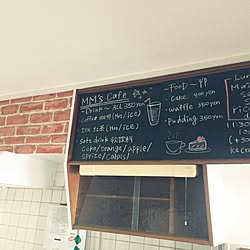 MM's Cafe
~Drink~ ALL 350yen
Coffee (Hot/ice)
紅茶 (Hot/ice)
Soft drink
Coke/orange/apple/
Sprite/Calpis/
~FooD~
・Cake 400yen
・waffle 350yen
・Pudding 350yen
Lun
Mai
Sa
ric
11:30
ice cre